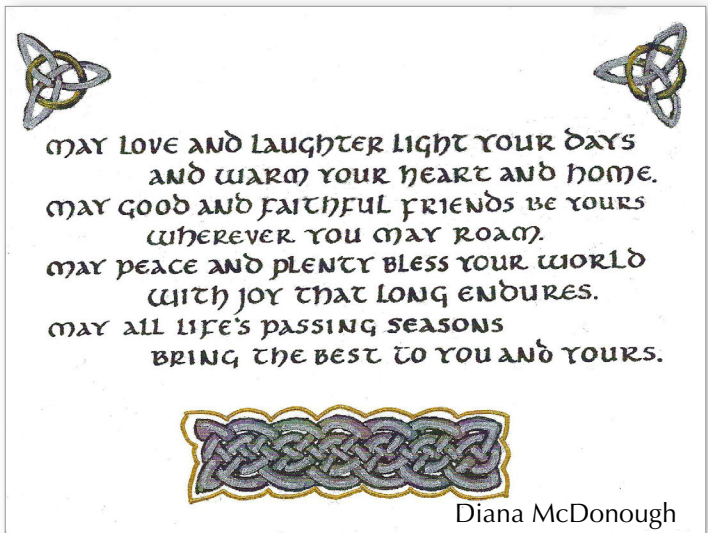 MAY LOVE AND LAUGHTER LIGHT YOUR DAYS
AND WARM YOUR HEART AND HOME.
MAY GOOD AND FAITHFUL FRIENDS BE YOURS
WHEREVER YOU MAY ROAM.
MAY PEACE AND PLENTY BLESS YOUR WORLD
WITH JOY THAT LONG ENDURES.
MAY ALL LIFE'S PASSING SEASONS
BRING THE BEST TO YOU AND YOURS.
Diana McDonough